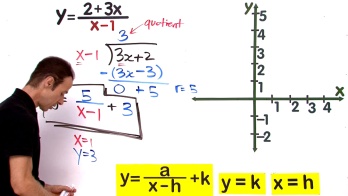 y = 2+3x / x-1
3 quotient
x-1 ) 3x+2
-(3x-3)
0 + 5 r=5
5 / x-1 + 3
x=1
y=3
y = a / x-h + k
y = k
x = h
y
5
4
3
2
1
x
1 2 3 4
-1
-2